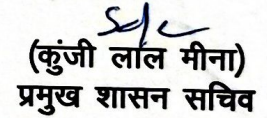 Sd/-
(कुंजी लाल मीना)
प्रमुख शासन सचिव